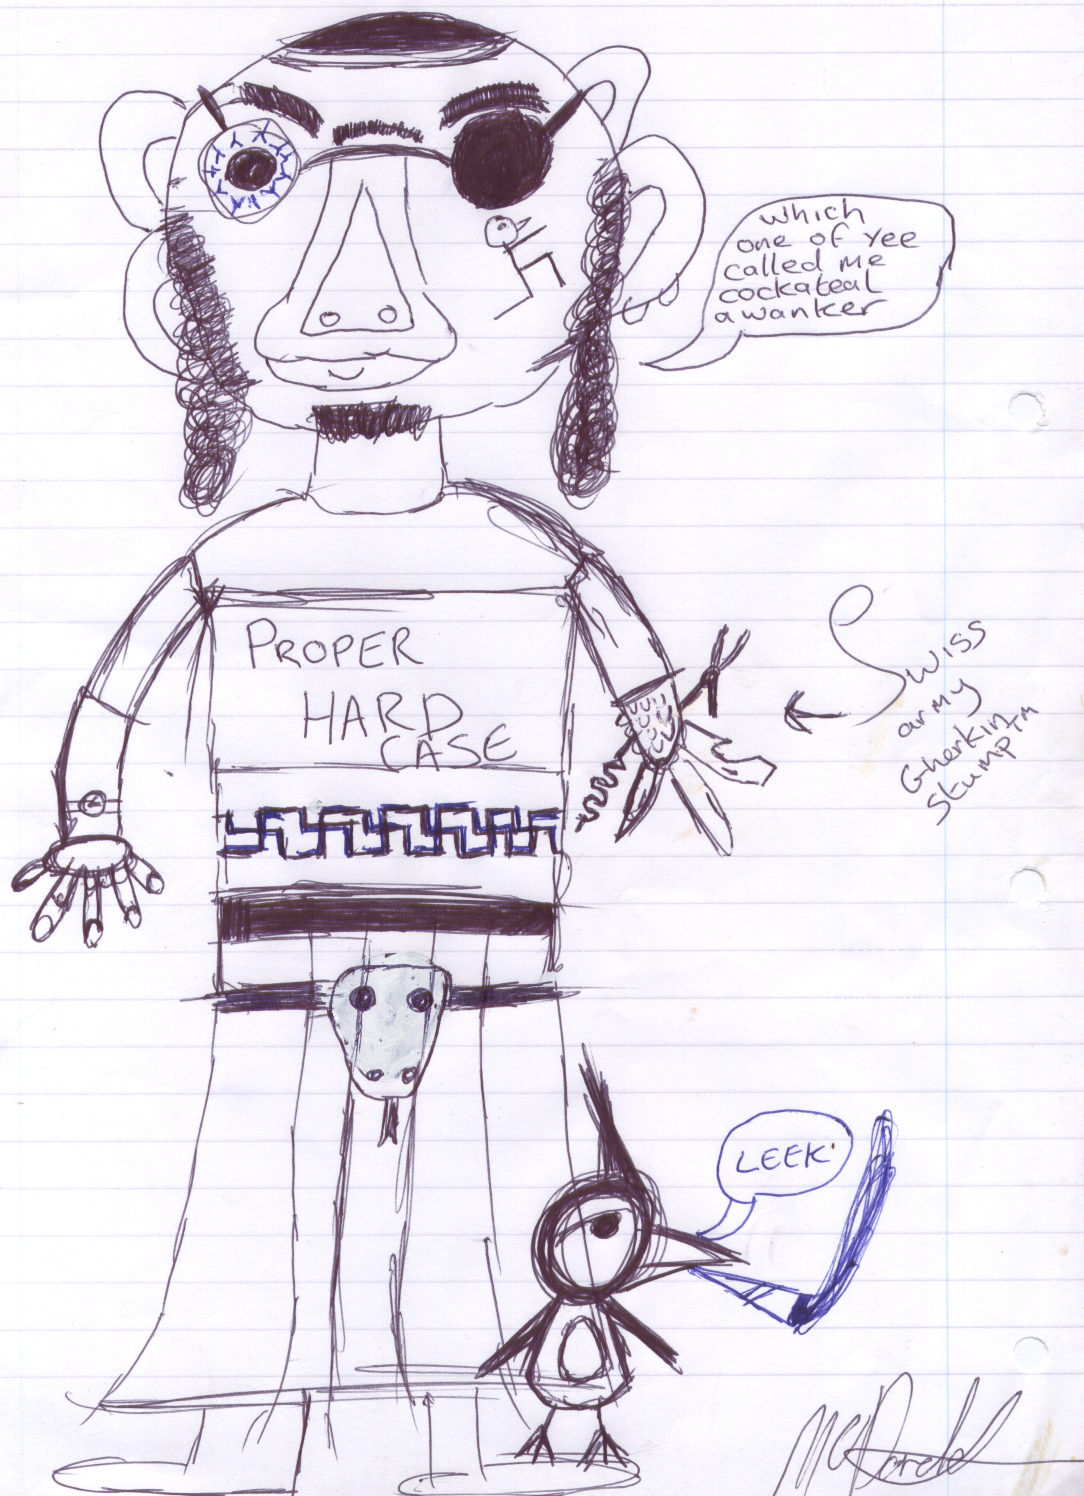 which
one of yee
called me
cockateal
a wanker
PROPER
HARD
CASE
Swiss
army
Gherkin
Stump™
LEEK
McDonald